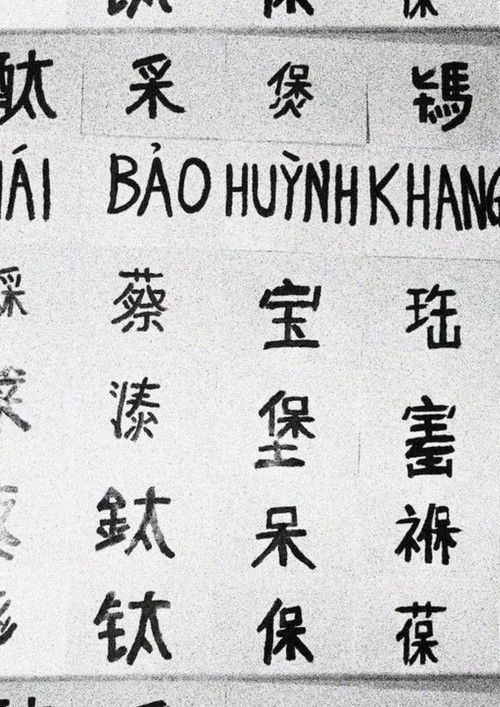 酞 采 煲
ÁI BẢO HUỲNH KHANG
蔡 宝 珤
溙 堡
鈦 呆 褓
钛 保 葆